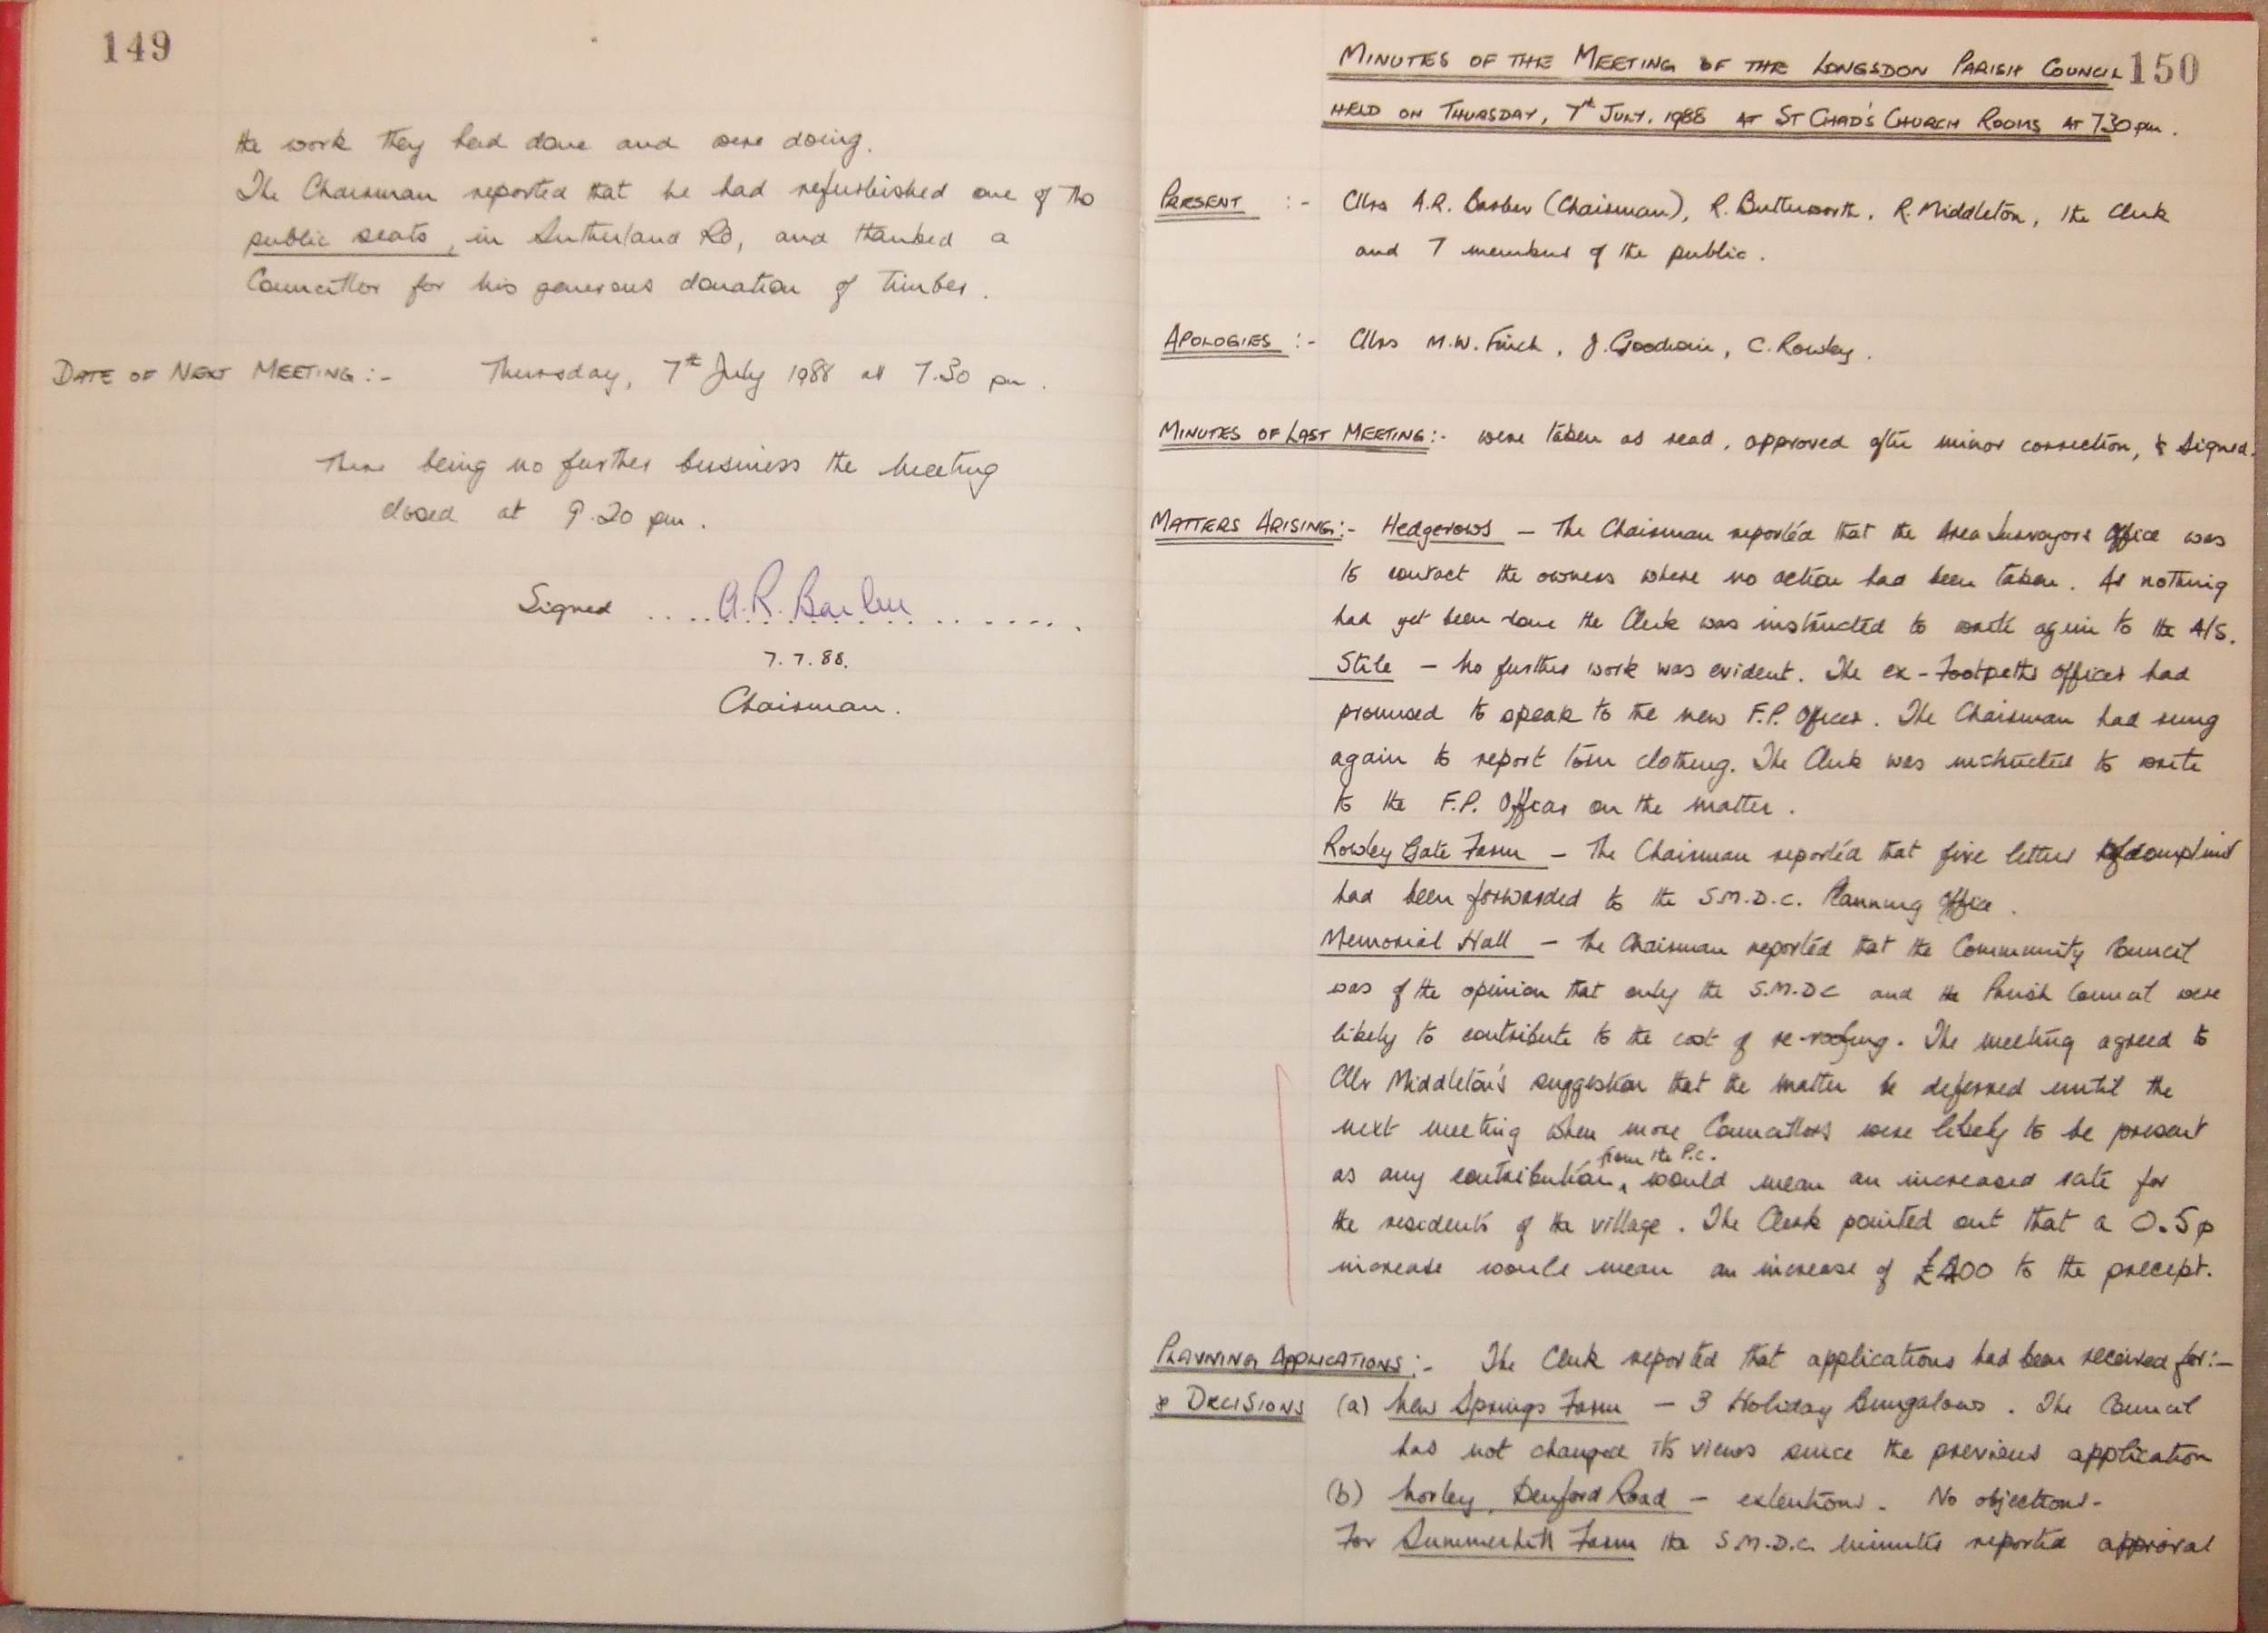 149
the work they had done and were doing.
The Chairman reported that he had refurbished one of the
public seats, in Sutherland Rd, and thanked a
Councillor for his generous donation of timber.
DATE OF NEXT MEETING :- Thursday, 7th July 1988 at 7.30 pm.
There being no further business the meeting
closed at 9.20 pm.
Signed .... A.R. Barber ....
7.7.88.
Chairman.
150
MINUTES OF THE MEETING OF THE LONGSDON PARISH COUNCIL
HELD ON THURSDAY, 7th JULY, 1988 AT ST CHAD'S CHURCH ROOMS AT 7.30 pm.
PRESENT :- Cllrs A.R. Barber (Chairman), R. Butterworth, R. Middleton, the Clerk
and 7 members of the public.
APOLOGIES :- Cllrs M.W. Finch, J. Goodwin, C. Rowley.
MINUTES OF LAST MEETING :- were taken as read, approved after minor correction, & signed.
MATTERS ARISING :- Hedgerows - The Chairman reported that the Area Surveyors Office was
to contact the owners where no action had been taken. As nothing
had yet been done the Clerk was instructed to write again to the A/S.
Stile - No further work was evident. The ex-Footpaths Officer had
promised to speak to the new F.P. Officer. The Chairman had rung
again to report torn clothing. The Clerk was instructed to write
to the F.P. Officer on the matter.
Rowley Gate Farm - The Chairman reported that five letters of complaint
had been forwarded to the S.M.D.C. Planning Office.
Memorial Hall - The Chairman reported that the Community Council
was of the opinion that only the S.M.D.C and the Parish Council were
likely to contribute to the cost of re-roofing. The meeting agreed to
Cllr Middleton's suggestion that the matter be deferred until the
next meeting when more Councillors were likely to be present
as any contribution from the P.C. would mean an increased rate for
the residents of the village. The Clerk pointed out that a 0.5p
increase would mean an increase of £200 to the precept.
PLANNING APPLICATIONS :- The Clerk reported that applications had been received for:-
& DECISIONS (a) New Springs Farm - 3 Holiday Bungalows. The Council
has not changed its views since the previous application
(b) Morley, Denford Road - extentions. No objections.
For Summerhill Farm the S.M.D.C. minutes reported approval